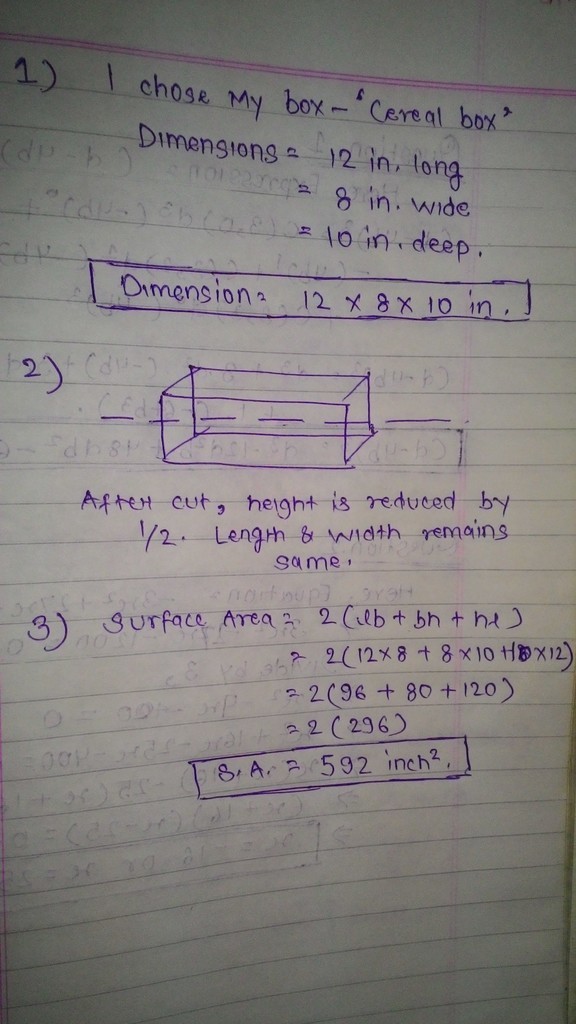 1) I chose My box - "Cereal box"
Dimensions = 12 in. long
= 8 in. wide
= 10 in. deep.
Dimension = 12 x 8 x 10 in.
2)
After cut, height is reduced by
1/2. Length & width remains
same.
3) Surface Area = 2(lb + bh + hl)
= 2(12x8 + 8x10 + 10x12)
= 2(96 + 80 + 120)
= 2(296)
S.A. = 592 inch².